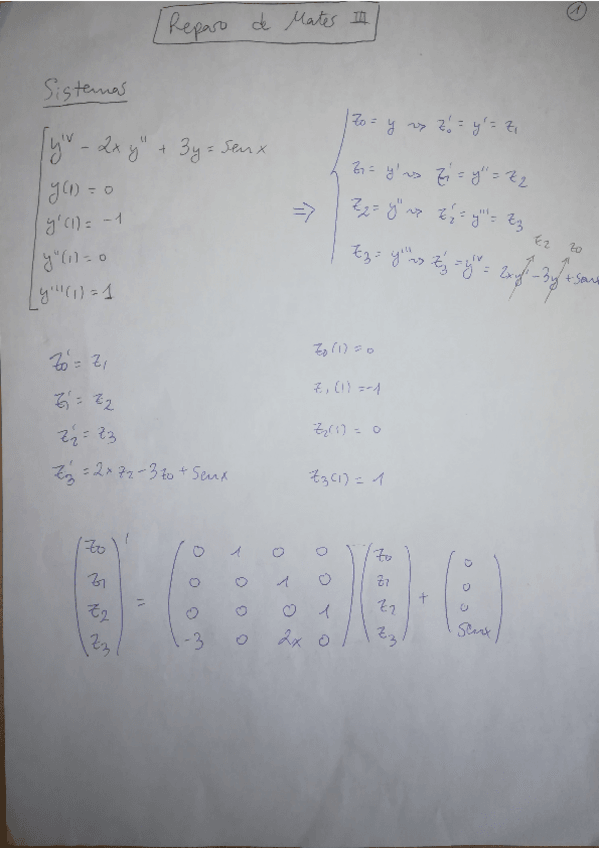 Repaso de Mates III
1
Sistemas
y'ᵛ - 2x y'' + 3y = Senx
y(1) = 0
y'(1) = -1
y''(1) = 0
y'''(1) = 1
⇒
z₀ = y ⇝ z₀' = y' = z₁
z₁ = y' ⇝ z₁' = y'' = z₂
z₂ = y'' ⇝ z₂' = y''' = z₃
z₃ = y''' ⇝ z₃' = y'ᵛ = 2xy'' - 3y + Senx
z₂ z₀
z₀' = z₁
z₁' = z₂
z₂' = z₃
z₃' = 2x z₂ - 3z₀ + Senx
z₀(1) = 0
z₁(1) = -1
z₂(1) = 0
z₃(1) = 1
(z₀ z₁ z₂ z₃)' =
0 1 0 0
0 0 1 0
0 0 0 1
-3 0 2x 0
(z₀ z₁ z₂ z₃) + (0 0 0 Senx)